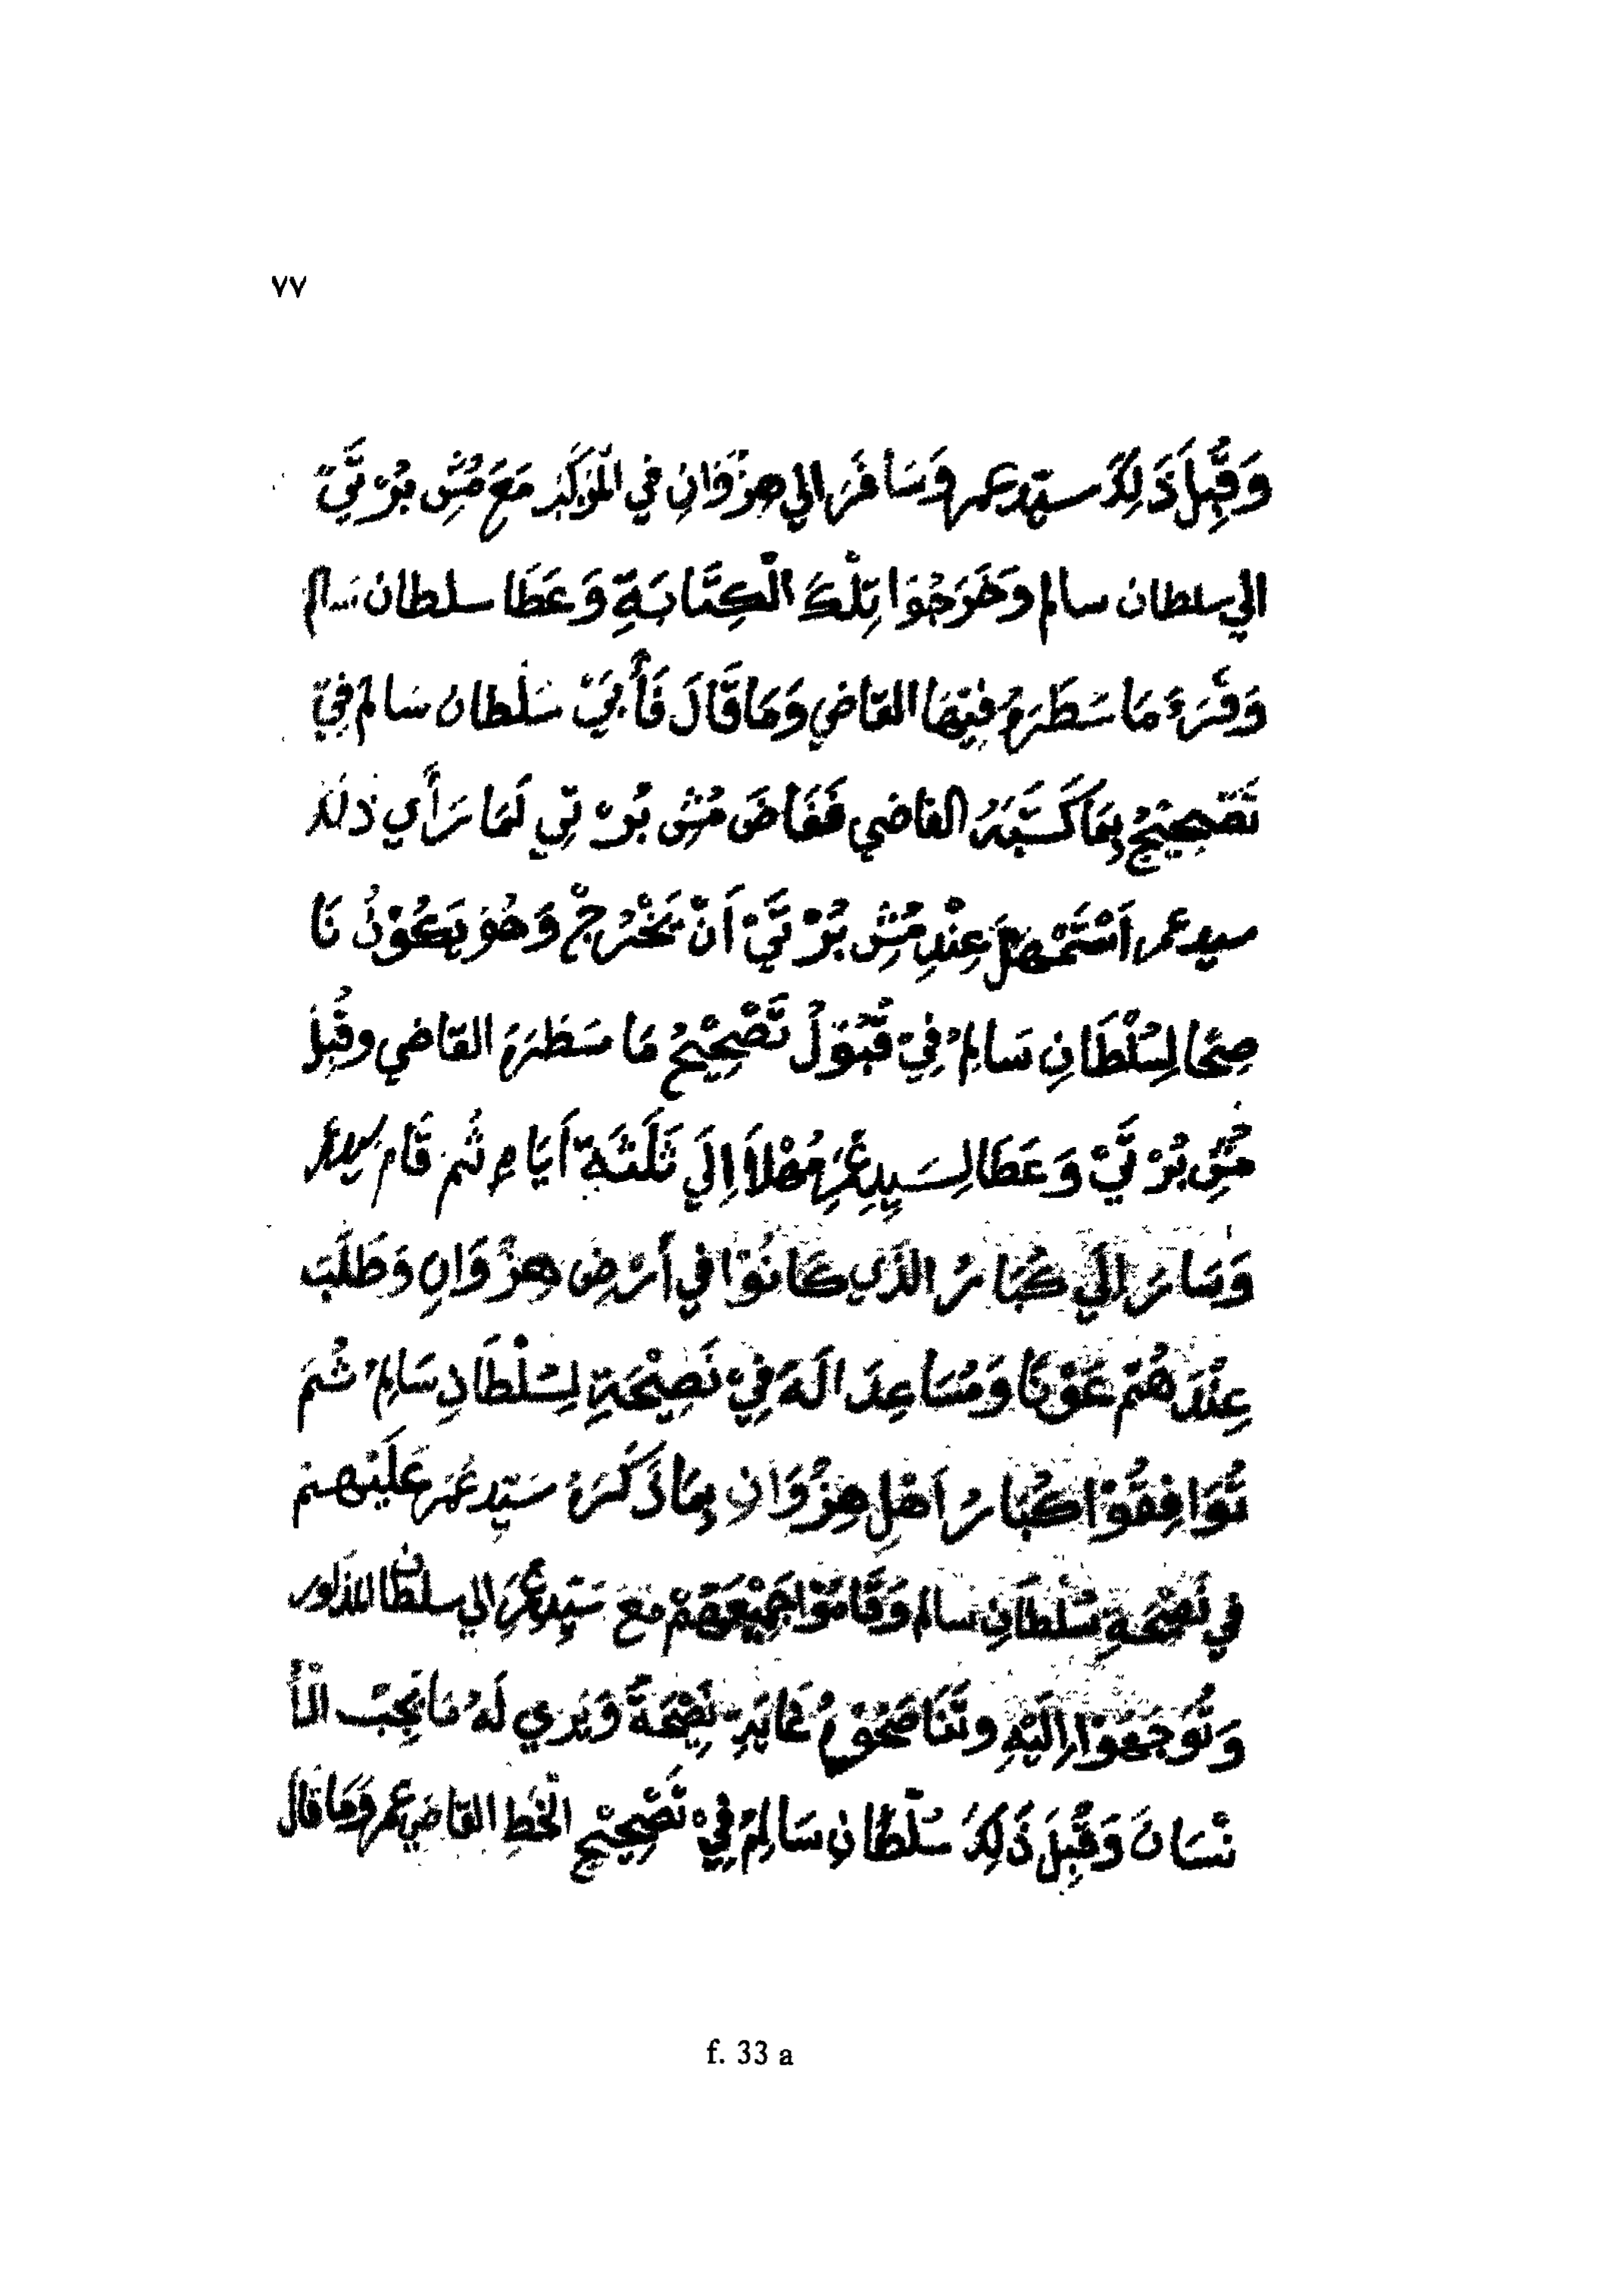 ٧٧
وَقَبِلَ ذَلِكَ سيّد عمر وَسَافَرَ الي هِنْزُوَانِ في الْمَرْكَبِ مَعَ مُشِ بُرْتَيْ
الي سلطان سالم وَخَرَجُوَا تِلْكَ الْكِتَابَةِ وَعَطَا سلطان سالم
وَقَرَءَ مَا سَطَرَهُ فِيْهَا القاضي وَمَا قَالَ فَأَبَيْ سَلْطان سَالمُ فِيْ
تَصْحِيْحُ بِمَا كَتَبَهُ القاضي فَفَاضَ مُشِ بُرْتِي لَمَا رَأَي ذلك
سيد عمر اَسْتَمْهَلَ عِنْدِ مُشِ بُرْتَيْ اَنْ يَخْرُجْ وَهُوَ يَكُوْنُ نَا
صِحًا لِسُلْطَانِ سَالِمُ فِيْ قُبُوَلُ تَصْحِيْحُ مَا سَطَرَهَ القاضي وقَبِلَ
مُشِ بُرْتَيْ وَعَطَا لِسَيِدِ عُمَرِ مُهْلاً اِلَي ثَلَثَةَ اَيَامٍ ثُم قَام سيد عمر
وَسَارَ اِلَي كُبَارُ الذَي كَانُوْا في أَرْضِ هِنْزُوَانِ وَطَلَبَ
عِنْدَهُمْ عَوْنًا وَمُسَاعِدَا لَهَ فِيْ نَصِيْحَةِ لِسُلْطَانِ سَالِمُ ثُمَ
تُوَافِقُوْا كُبَارُ اَهْلِ هِنْزُوَانِ بِمَا ذَكَرَهُ سَيّدِ عُمَرَ عَلَيْهِمْ
في نَصْحَةِ سُلْطَانِ سالم وَقَامُوْا جَمِيْعَهُمْ مع سَيّدِ عُمَرَ الي سلطان المذكور
وَتُوَجَهُوْا اِلَيْهِ وتَنَاصَحُوْهُ غَايَةِ نَصِيْحَةً وَيَرِي لَهُ مَا يَجِبُ الْاَ
نْسَانَ وَقَبِلَ ذَلِكَ سُلْطَانِ سَالِمُ فِيْ تَصْحِيْحِ الْخَطِ القاضي عمر وَمَا قال
f. 33 a